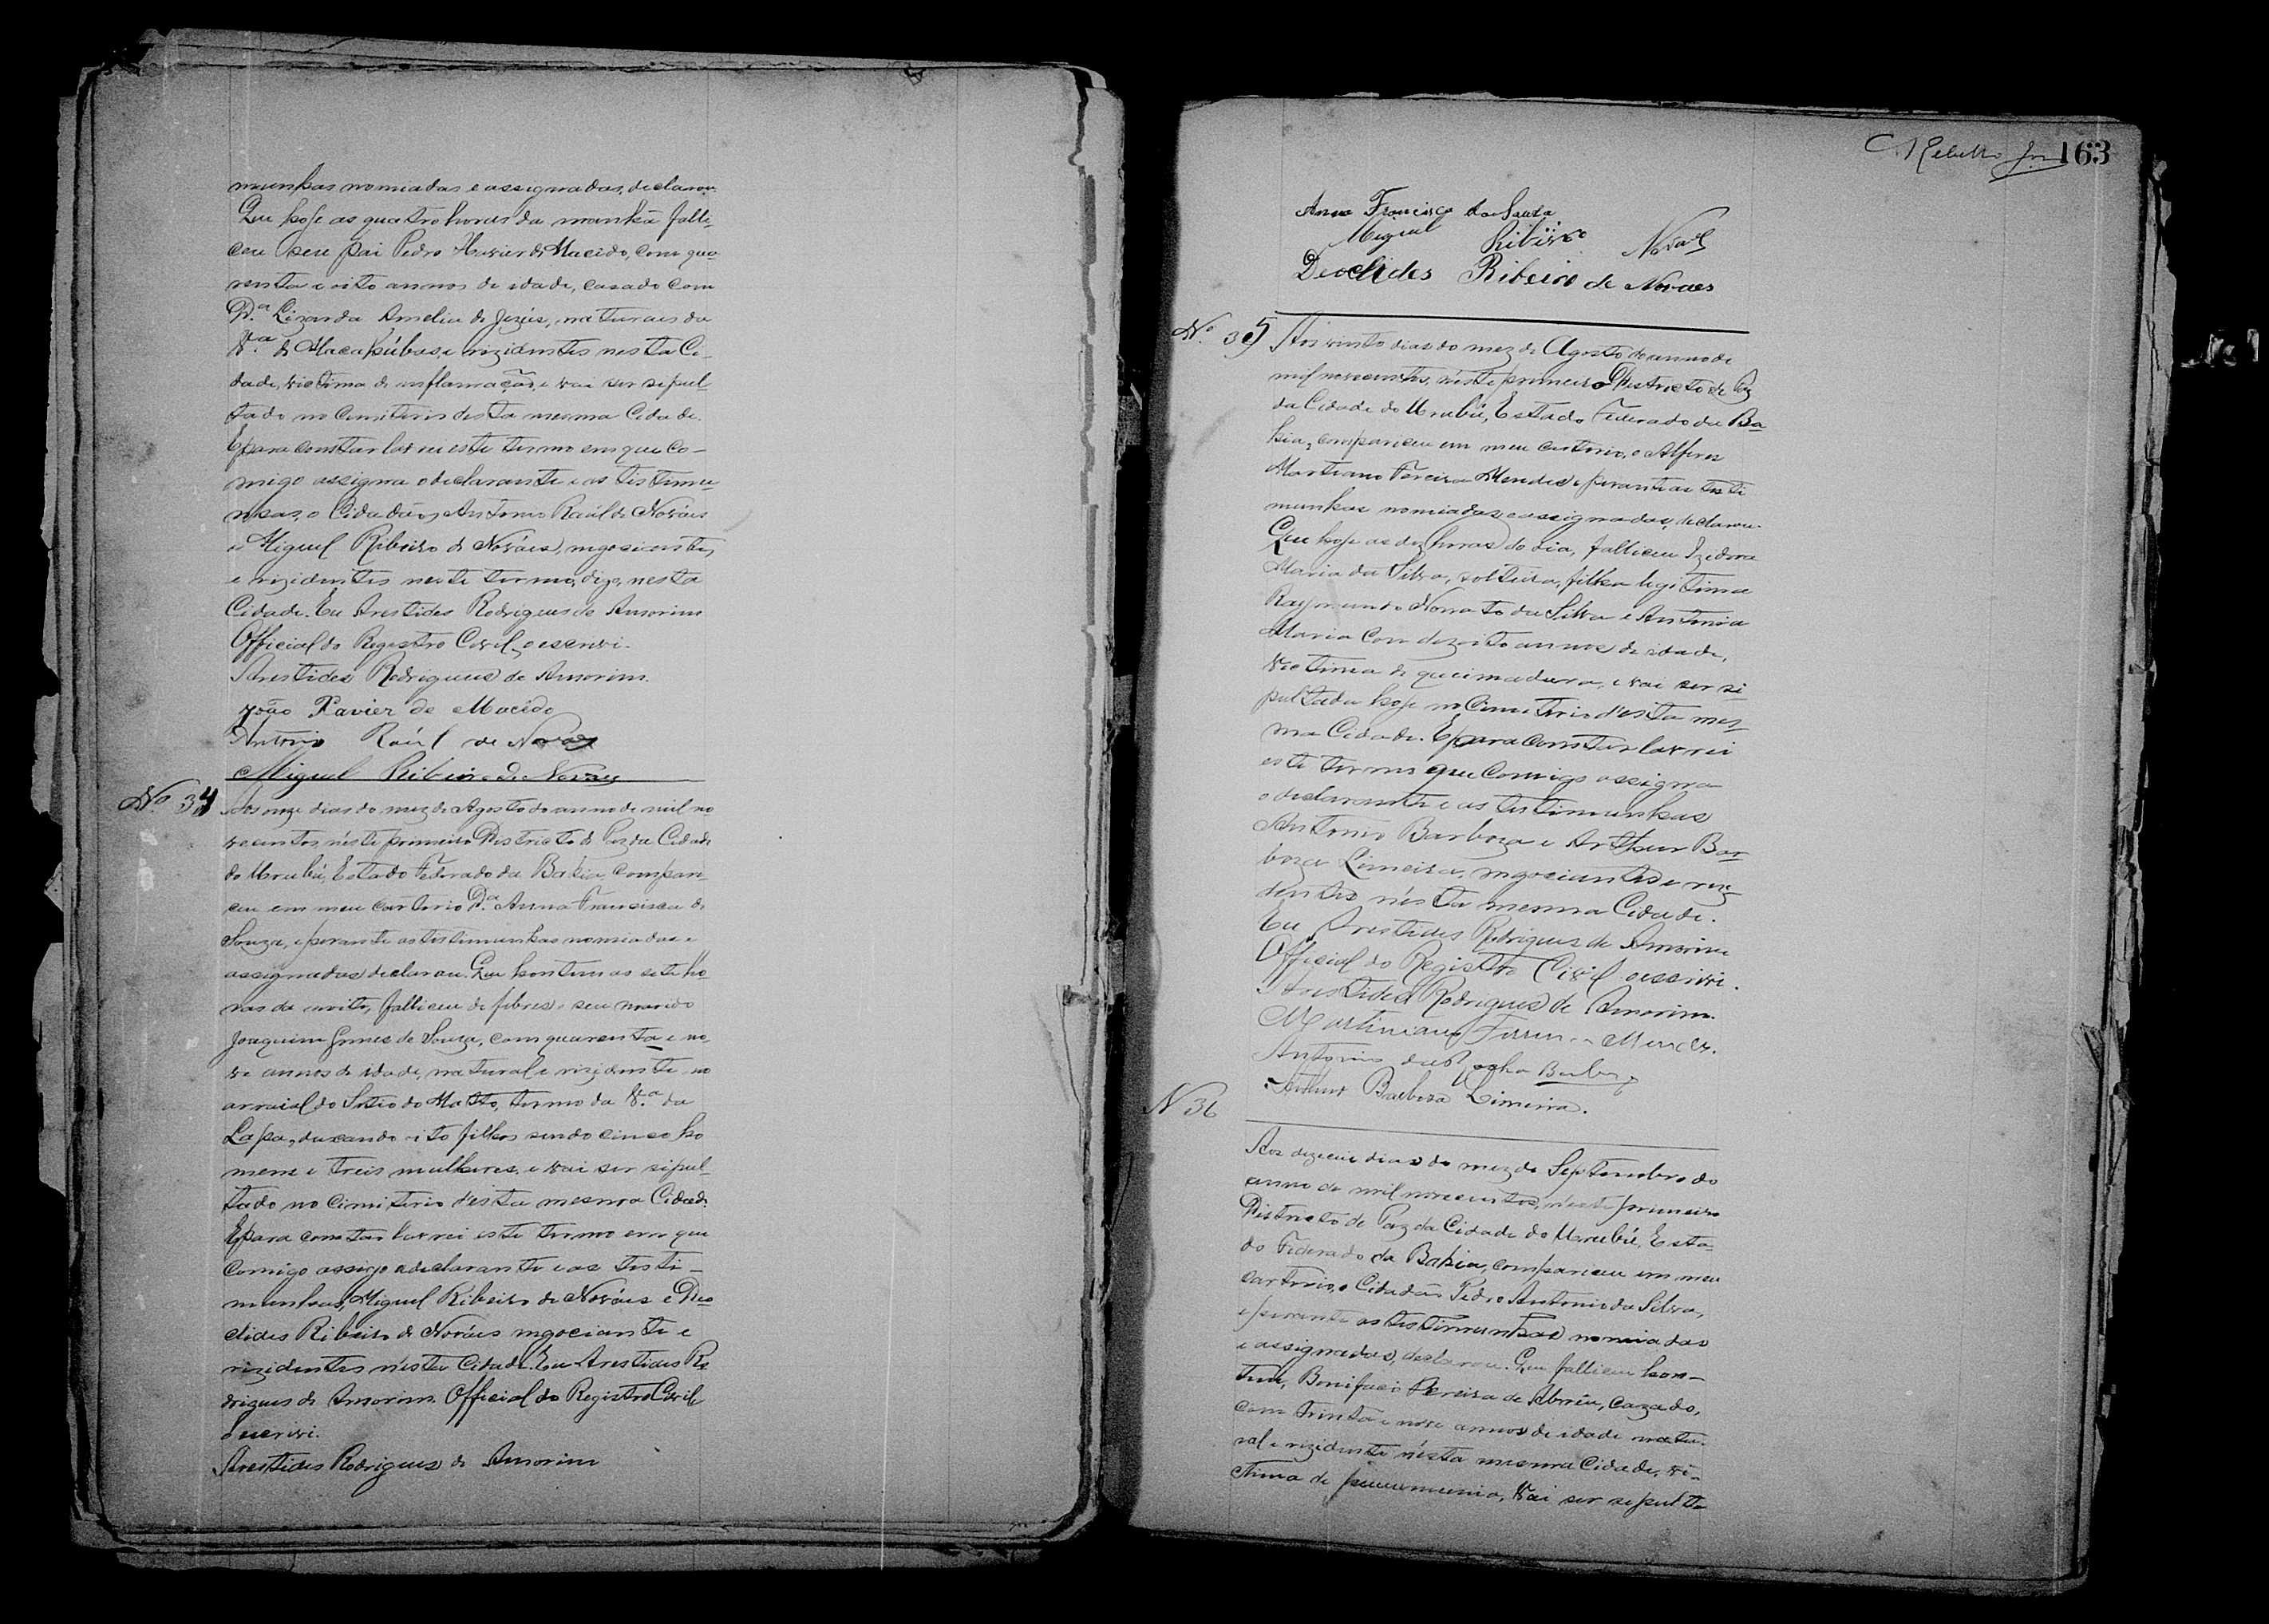 munhas nomiadas e assignadas, declarou.
Que hoje as quatro horas da manhã falle-
ceu seu pai Pedro Xavier de Macedo, com qua-
renta e oito annos de idade, casado com
D.ª Lizarda Amelia de Jezús, naturaes da
V.ª de Macahúbas, e rizidentes nesta Ci-
dade, victima de inflamação, e vai ser sepul-
tado no Cimiterio desta mesma Cidade.
E para constar lavrei este termo em que co-
migo assigna o declarante e as testimu-
nhas, o Cidadãos Antonio Raúl de Nováes
e Miguel Ribeiro de Nováes, negociantes,
e rizidentes neste termo, digo, nesta
Cidade. Eu Arestides Rodrigues de Amorim
Official do Registro Civil, o escrivi.
Arestides Rodrigues de Amorim.
João Xavier de Macêdo
Antonio Raúl de Novaes
Miguel Ribeiro de Nováes
Nº 34 Aos onze dias do mez de Agosto do anno de mil no-
vecentos, néste primeiro Districto de Paz da Cidade
do Urubú, Estado Federado da Bahia, compare-
ceu em meu Cartorio D.ª Anna Francisca de
Souza, e perante as testimunhas nomiadas e
assignadas declarou. Que hontem as sete ho-
ras da noite, falleceu de febres o seu marido
Joaquim Gomes de Souza, com quarenta e no-
ve annos de idade, natural e rizidente no
arraial do Sitio do Matto, termo da V.ª da
Lapa, deixando oito filhos sendo cinco ho
mens e treis mulheres, e vai ser sepul-
tado no Cimiterio d'esta mesma Cidade.
E para constar lavrei este termo em que
Comigo assigna a declarante e as testi-
munhas, Miguel Ribeiro de Nováes e Deo
clides Ribeiro de Nováes negociante e
rizidentes n'esta Cidade. Eu Arestides Ro
drigues de Amorim Official do Registro Civil
o escrivi.
Arestides Rodrigues de Amorim
C. Rebello Jor. 163
Anna Francisca da Souza
Miguel Ribeiro Novaes
Deoclides Ribeiro de Novaes
Nº 35 Aos vinte dias do mez de Agosto do anno de
mil novecentos, néste primeiro Districto de Paz
da Cidade do Urubú, Estado Federado da Ba
hia, compareceu em meu Cartorio, o Alferes
Martiano Pereira Mendes e perante as teste
munhas nomiadas e assignadas, declarou.
Que hoje as dez horas do dia, falleceu Izidora
Maria da Silva, solteira, filha legitima
Raymundo Nonato da Silva e Antonia
Maria Com dezoito annos de idade,
victima de queimadura, e vai ser se
pultada hoje no Cimiterio d'esta mes-
ma Cidade. E para constar lavrei
este termo que Comigo assigna
o declarante e as testimunhas
Antonio Barboza e Arthur Bar
boza Limeira, negociantes e rezi
dentes nésta mesma Cidade.
Eu Arestides Rodrigues de Amorim
Official do Registro Civil o escrivi.
Arestides Rodrigues de Amorim.
Martiniano Mendes.
Antonio da Rocha Barboza
Arthur Barboza Limeira.
N 36
Aos dias do mez de Septembro do
anno de mil novecentos, neste primeiro
Districto de Paz da Cidade do Urubú, Esta-
do Federado da Bahia, compareceu em meu
cartorio, o Cidadão Pedro Antonio da Silva,
e perante as testimunhas nomiadas
e assignadas, declarou. Que falleceu hon-
tem, Bonifacio Pereira de Abrêu, Cazado,
com trinta e nove annos de idade natu-
ral e rizidente nésta mesma Cidade, vi-
ctima de pneumunia, Vai ser sepulta